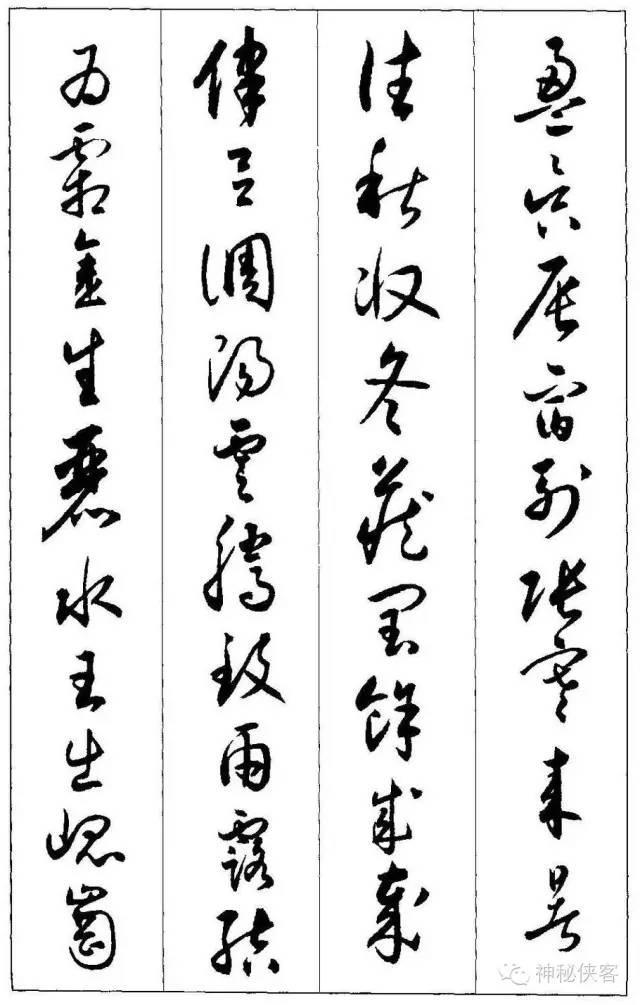 盈昃辰宿列張寒來暑
往秋收冬藏閏餘成歲
律呂調陽雲騰致雨露結
為霜金生麗水玉出崐崗
神秘侠客